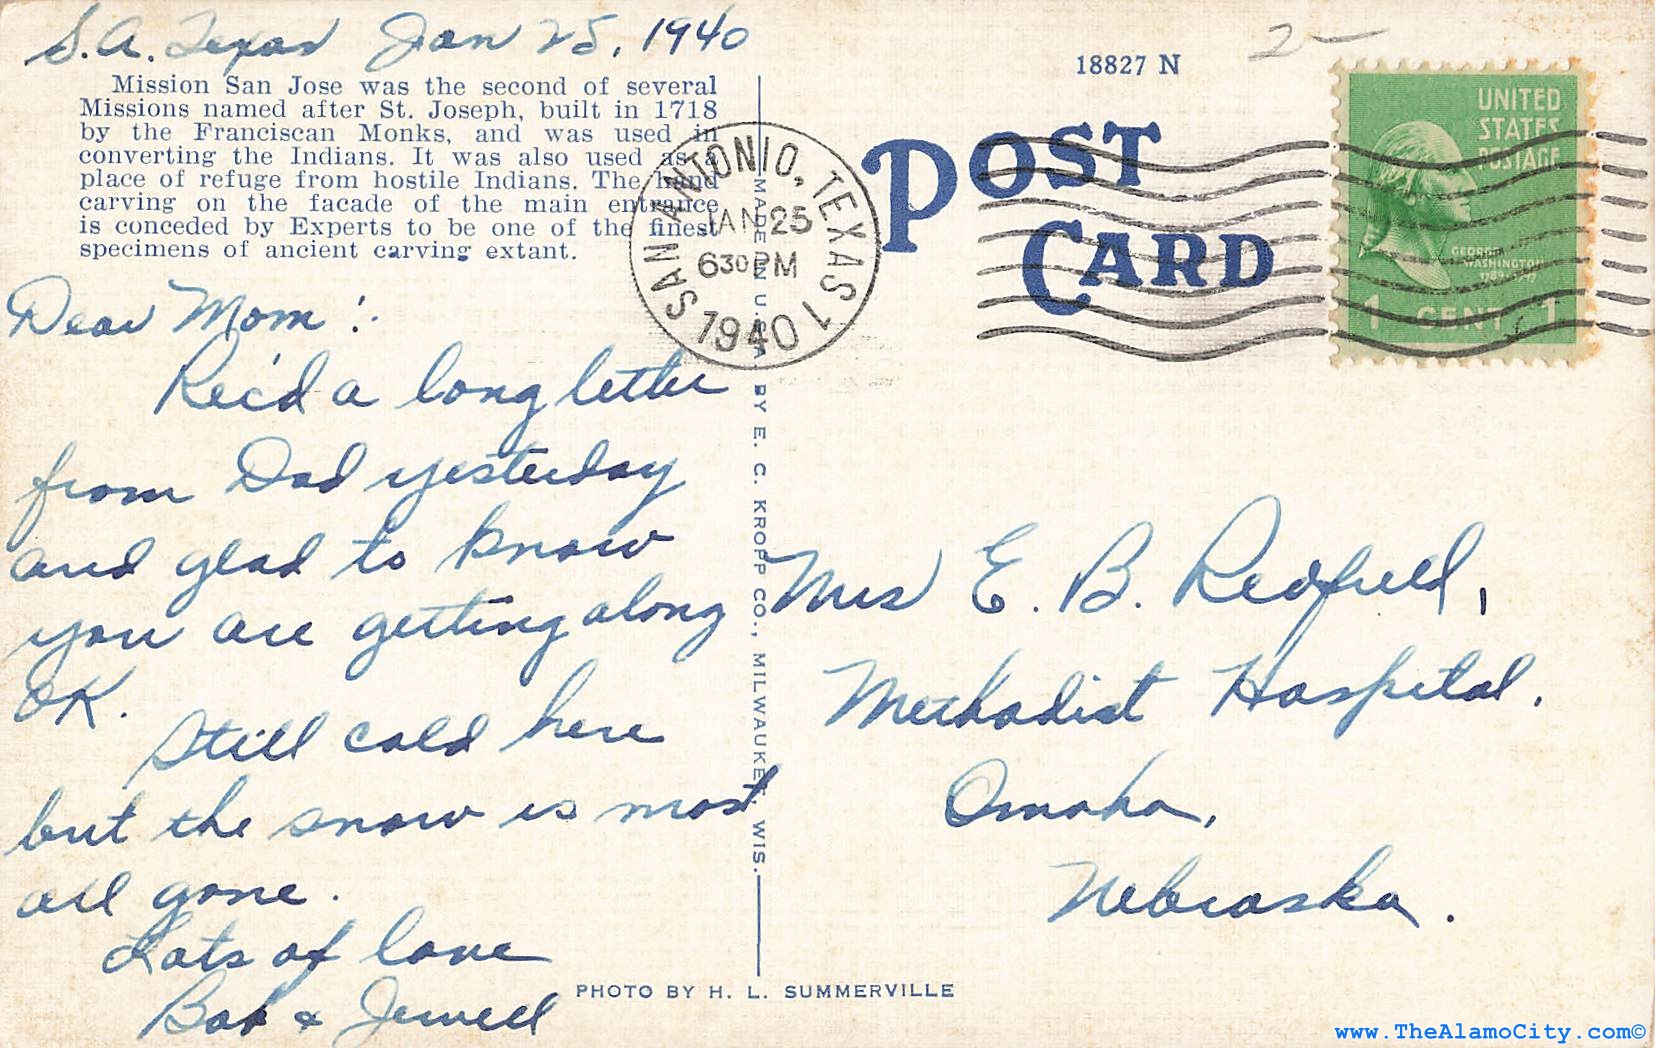 S.A. Texas Jan 25, 1940
Mission San Jose was the second of several
Missions named after St. Joseph, built in 1718
by the Franciscan Monks, and was used in
converting the Indians. It was also used as a
place of refuge from hostile Indians. The hand
carving on the facade of the main entrance
is conceded by Experts to be one of the finest
specimens of ancient carving extant.
Dear Mom:
Rec'd a long letter
from Dad yesterday
and glad to know
you are getting along
OK.
Still cold here
but the snow is most
all gone.
Lots of love
Bob & Jewell
MADE IN U.S.A. BY E. C. KROPP CO., MILWAUKEE, WIS.
PHOTO BY H. L. SUMMERVILLE
SAN ANTONIO, TEXAS 1
JAN 25
630 PM
1940
18827 N
2 —
POST
CARD
UNITED
STATES
POSTAGE
GEORGE
WASHINGTON
1 CENT 1
Mrs E. B. Redfield,
Methodist Hospital.
Omaha,
Nebraska.
www.TheAlamoCity.com©